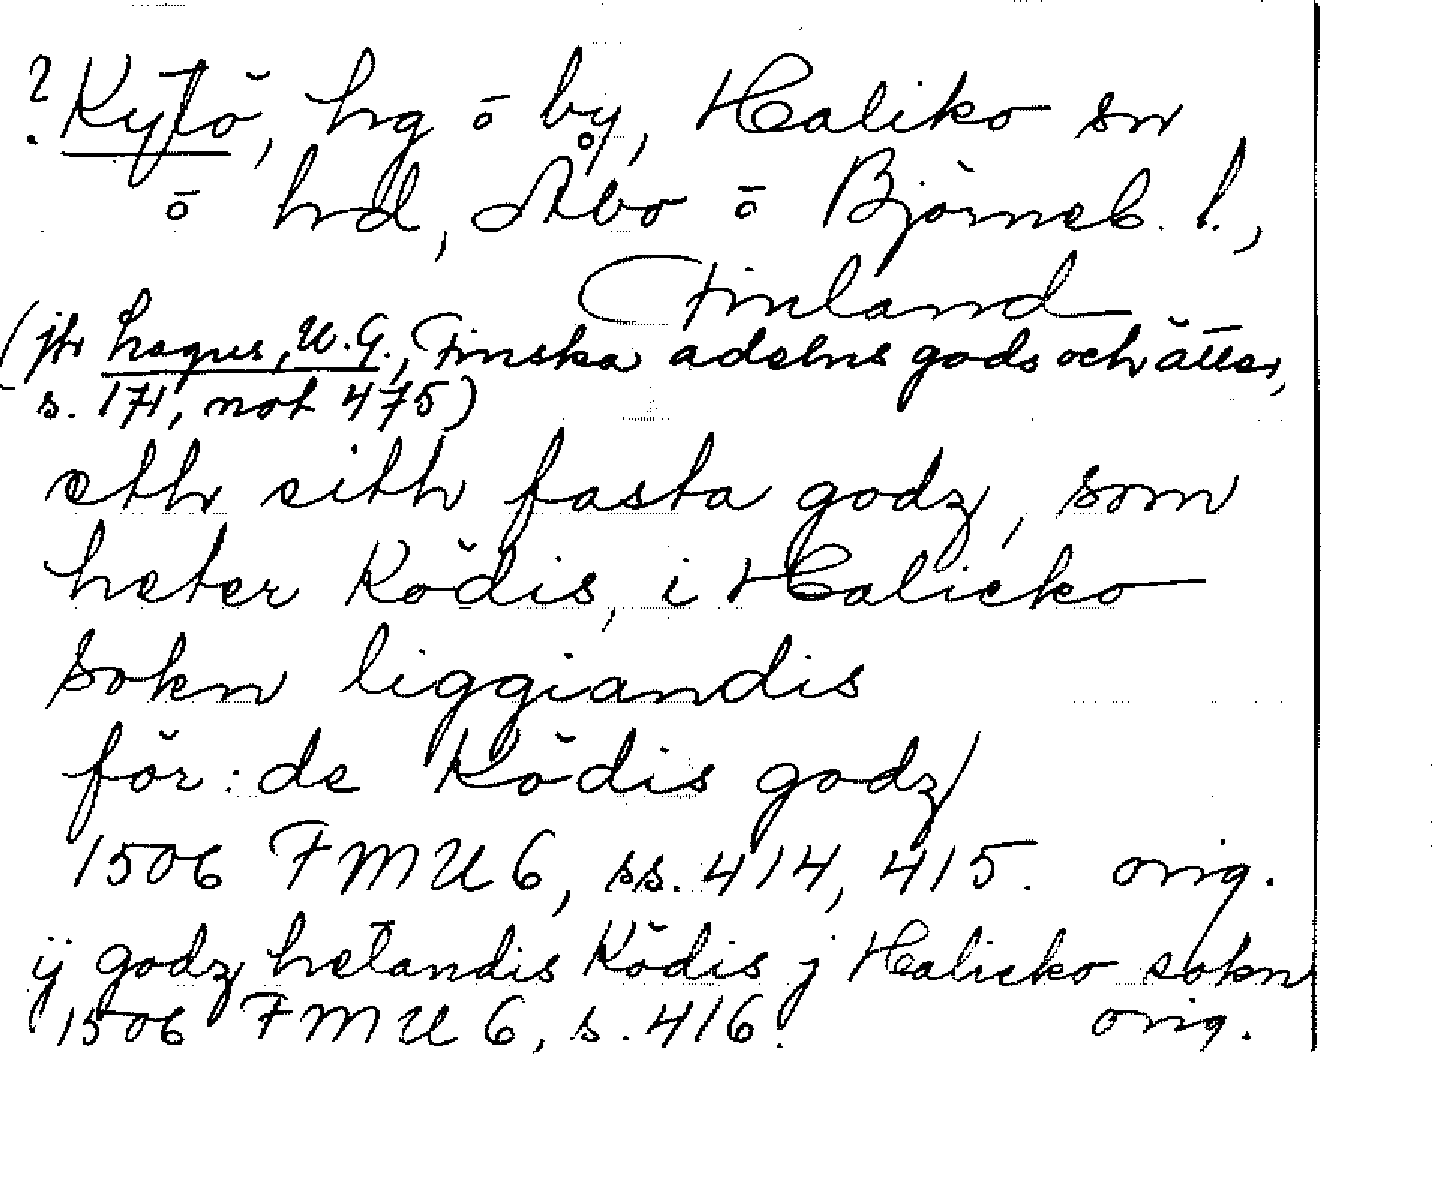 ? Kytö, hg ō by, Haliko sn
ō hd, Åbo ō Björneb. l.,
Finland
(jfr Lagus, W.G., Finska adelns gods och ätter,
s. 171, not 475)
eth sith fasta godz, som
heter Ködis, i Halicko
sokn liggiandis
för: de Ködis godz/
1506 FMU 6, ss. 414, 415. orig.
ij godz hetandis Ködis j Halicko sokn
1506 FMU 6, s. 416. orig.